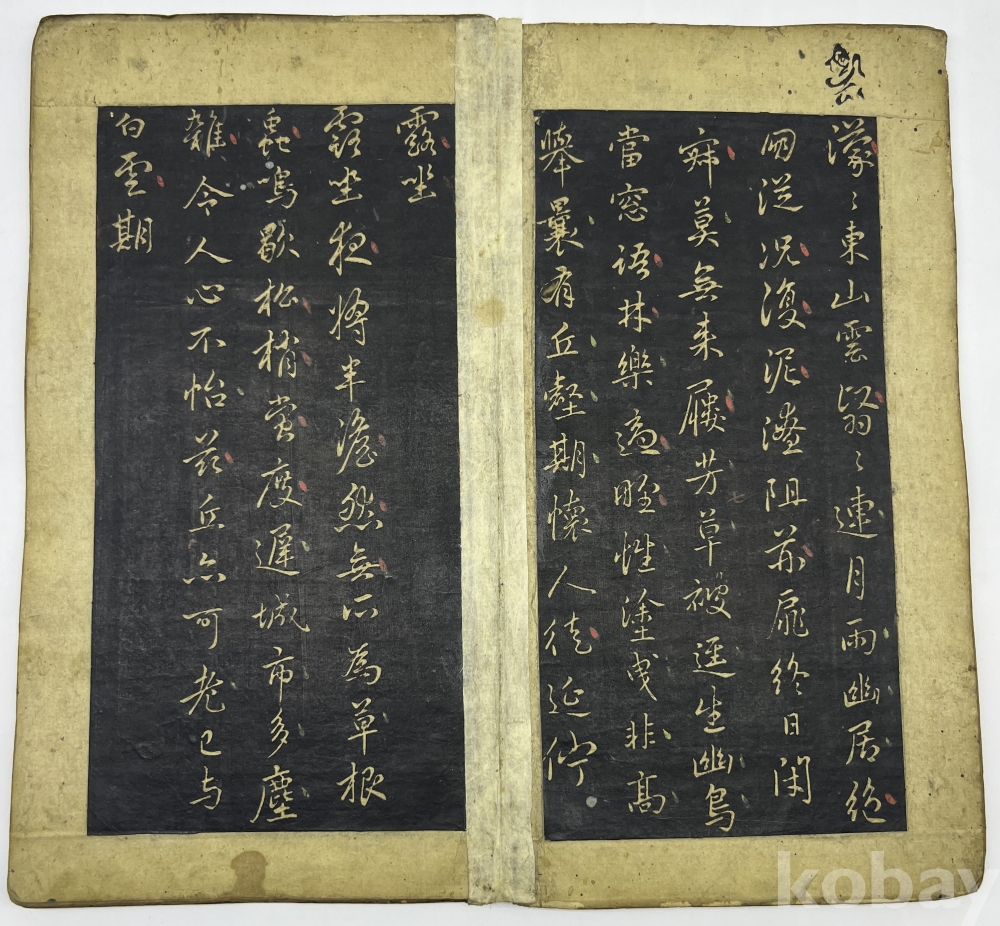 濛〻東山雲翳〻連月雨幽居絶
朋從况復泥潦阻荊扉終日閑
寂莫無来屨芳草被逕生幽鳥
當窓語林樂適性塗曳非高
舉曩有丘壑期懷人徒延佇
露坐
露坐夜將半澹然無所為草根
蟲鳴歇松梢螢度遲城市多塵
雜令人心不怡茲丘亦可老已与
白雲期
kobay